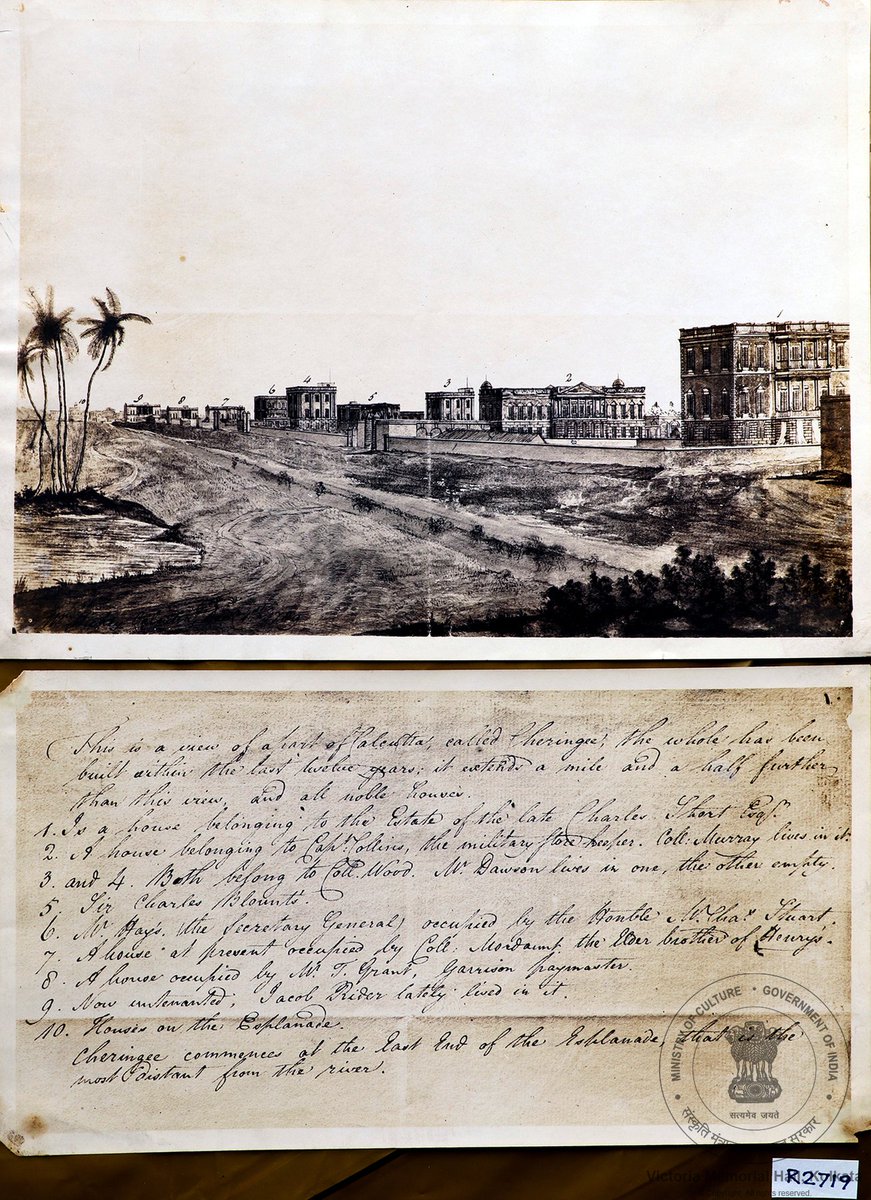 1
2
3
4
5
6
7
8
9
This is a view of a part of Calcutta, called Cheringee, the whole has been
built within the last twelve years; it extends a mile and a half further
than this view, and all noble houses.
1. Is a house belonging to the Estate of the late Charles Short Esqr.
2. A house belonging to Capt. Collins, the military store keeper. Coll: Murray lives in it.
3. and 4. Both belong to Coll. Wood. Mr. Dawson lives in one, the other empty.
5. Sir Charles Blount's.
6. Mr. Hay's, (the Secretary General) occupied by the Honble Mr. Chas. Stuart.
7. A house at present occupied by Coll: Mordaunt the Elder brother of Henry's.
8. A house occupied by Mr. T. Grant, Garrison paymaster.
9. Now untenanted, Jacob Rider lately lived in it.
10. Houses on the Esplanade.
Cheringee commences at the East End of the Esplanade, that is the
most distant from the river.
1.
MINISTRY OF CULTURE • GOVERNMENT OF INDIA
सत्यमेव जयते
Victoria Memorial Hall, Kolkata
All rights reserved.
R2719